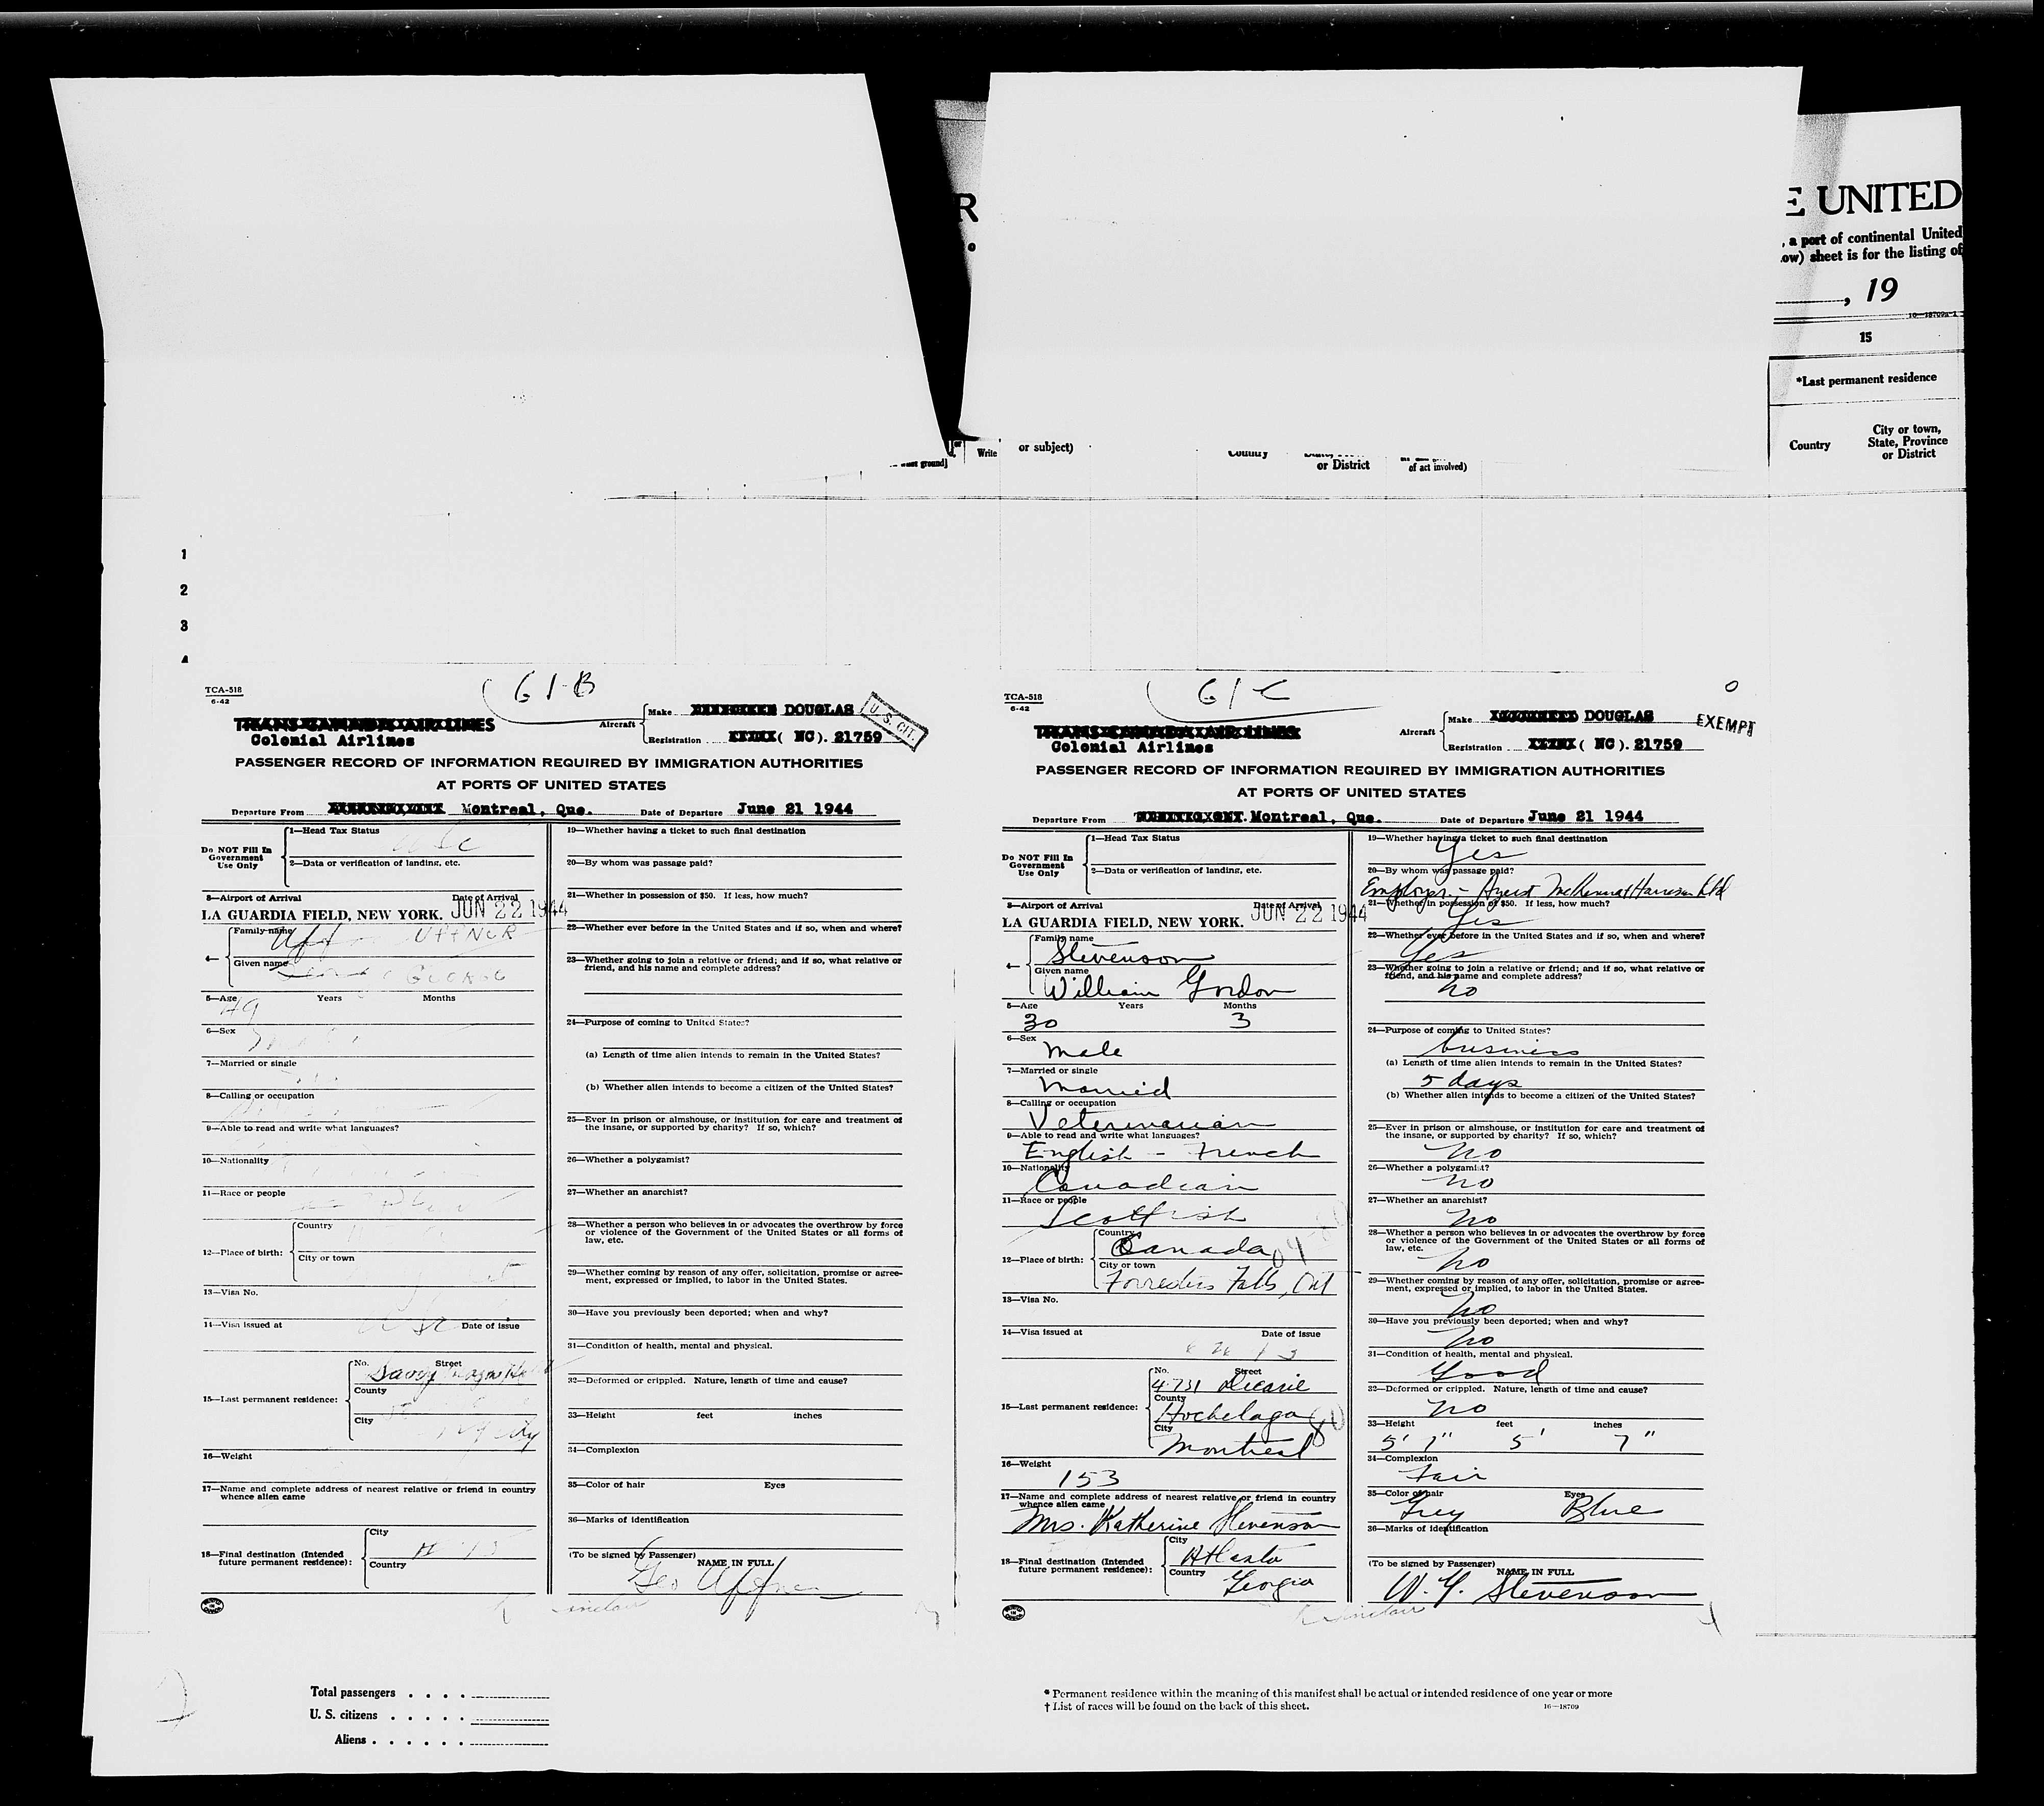 R
E UNITED
, a port of continental United
ow) sheet is for the listing of
, 19
16—18709a-1
15
*Last permanent residence
Country
City or town,
State, Province
or District
ground]
or
Write
or subject)
Country
or District
of act involved)
1
2
3
4
TCA-518
6-42
61-B
TRANS-CANADA AIR LINES
Colonial Airlines
Aircraft
Make DOUGLAS
Registration (NC). 21759
U.S. CIT.
PASSENGER RECORD OF INFORMATION REQUIRED BY IMMIGRATION AUTHORITIES
AT PORTS OF UNITED STATES
Departure From Montreal, Que. Date of Departure June 21 1944
Do NOT Fill In
Government
Use Only
1—Head Tax Status
USC
2—Data or verification of landing, etc.
3—Airport of Arrival Date of Arrival
LA GUARDIA FIELD, NEW YORK. JUN 22 1944
4—
Family name UFFNER
Given name GEORGE
5—Age Years Months
49
6—Sex
7—Married or single
8—Calling or occupation
9—Able to read and write what languages?
10—Nationality
11—Race or people
12—Place of birth:
Country
City or town
13—Visa No.
14—Visa issued at Date of issue
15—Last permanent residence:
No. Street
Savoy
County
City
16—Weight
17—Name and complete address of nearest relative or friend in country
whence alien came
18—Final destination (Intended
future permanent residence):
City
Country
19—Whether having a ticket to such final destination
20—By whom was passage paid?
21—Whether in possession of $50. If less, how much?
22—Whether ever before in the United States and if so, when and where?
23—Whether going to join a relative or friend; and if so, what relative or
friend, and his name and complete address?
24—Purpose of coming to United States?
(a) Length of time alien intends to remain in the United States?
(b) Whether alien intends to become a citizen of the United States?
25—Ever in prison or almshouse, or institution for care and treatment of
the insane, or supported by charity? If so, which?
26—Whether a polygamist?
27—Whether an anarchist?
28—Whether a person who believes in or advocates the overthrow by force
or violence of the Government of the United States or all forms of
law, etc.
29—Whether coming by reason of any offer, solicitation, promise or agree-
ment, expressed or implied, to labor in the United States.
30—Have you previously been deported; when and why?
31—Condition of health, mental and physical.
32—Deformed or crippled. Nature, length of time and cause?
33—Height feet inches
34—Complexion
35—Color of hair Eyes
36—Marks of identification
(To be signed by Passenger) NAME IN FULL
Geo Uffner
Sinclair
TCA-518
6-42
61C
TRANS-CANADA AIR LINES
Colonial Airlines
Aircraft
Make DOUGLAS
Registration (NC). 21759
EXEMPT
PASSENGER RECORD OF INFORMATION REQUIRED BY IMMIGRATION AUTHORITIES
AT PORTS OF UNITED STATES
Departure From Montreal, Que. Date of Departure June 21 1944
Do NOT Fill In
Government
Use Only
1—Head Tax Status
2—Data or verification of landing, etc.
3—Airport of Arrival Date of Arrival
LA GUARDIA FIELD, NEW YORK. JUN 22 1944
4—
Family name
Stevenson
Given name
William Gordon
5—Age Years Months
30 3
6—Sex
Male
7—Married or single
Married
8—Calling or occupation
Veterinarian
9—Able to read and write what languages?
English - French
10—Nationality
Canadian
11—Race or people
Scottish
12—Place of birth:
Country
Canada
City or town
Forresters Falls, Ont
13—Visa No.
14—Visa issued at Date of issue
15—Last permanent residence:
No. Street
4731 Decarie
County
Hochelaga
City
Montreal
16—Weight
153
17—Name and complete address of nearest relative or friend in country
whence alien came
Mrs. Katherine Stevenson
18—Final destination (Intended
future permanent residence):
City
Atlanta
Country
Georgia
19—Whether having a ticket to such final destination
Yes
20—By whom was passage paid?
Employer - Ayerst McKenna & Harrison Ltd
21—Whether in possession of $50. If less, how much?
Yes
22—Whether ever before in the United States and if so, when and where?
Yes
23—Whether going to join a relative or friend; and if so, what relative or
friend, and his name and complete address?
No
24—Purpose of coming to United States?
business
(a) Length of time alien intends to remain in the United States?
5 days
(b) Whether alien intends to become a citizen of the United States?
25—Ever in prison or almshouse, or institution for care and treatment of
the insane, or supported by charity? If so, which?
No
26—Whether a polygamist?
No
27—Whether an anarchist?
No
28—Whether a person who believes in or advocates the overthrow by force
or violence of the Government of the United States or all forms of
law, etc.
No
29—Whether coming by reason of any offer, solicitation, promise or agree-
ment, expressed or implied, to labor in the United States.
No
30—Have you previously been deported; when and why?
No
31—Condition of health, mental and physical.
Good
32—Deformed or crippled. Nature, length of time and cause?
No
33—Height feet inches
5' 7" 5' 7"
34—Complexion
Fair
35—Color of hair Eyes
Grey Blue
36—Marks of identification
(To be signed by Passenger) NAME IN FULL
W. G. Stevenson
Sinclair
Total passengers . . . .
U. S. citizens . . . . .
Aliens . . . . . .
* Permanent residence within the meaning of this manifest shall be actual or intended residence of one year or more
† List of races will be found on the back of this sheet. 16—18709